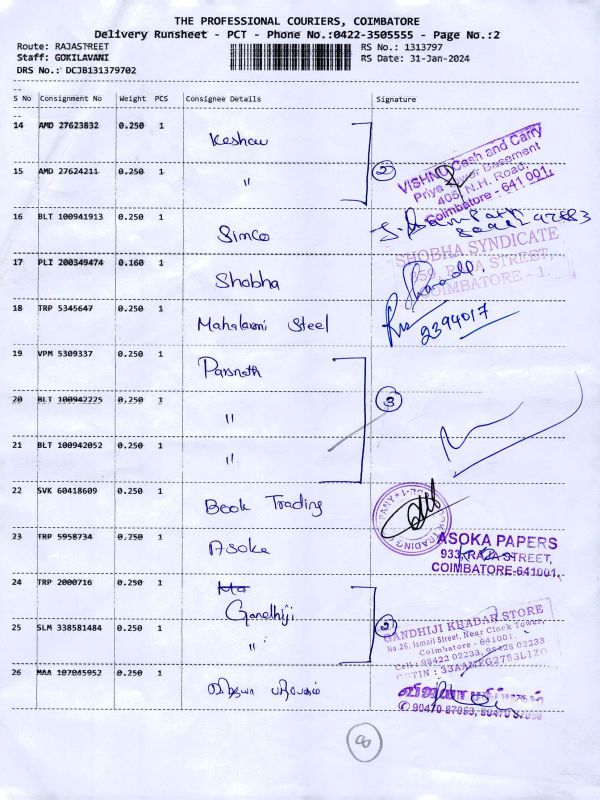 THE PROFESSIONAL COURIERS, COIMBATORE
Delivery Runsheet - PCT - Phone No.:0422-3505555 - Page No.:2
Route: RAJASTREET
RS No.: 1313797
Staff: GOKILAVANI
RS Date: 31-Jan-2024
DRS No.: DCJB131379702
S No Consignment No Weight PCS Consignee Details Signature
14 AMD 27623832 0.250 1 Keshav
15 AMD 27624211 0.250 1 "
2
VISHNU Cash and Carry
Priya Tower Basement
405, N.H. Road,
Coimbatore - 641 001.
16 BLT 100941913 0.250 1 Simco
17 PLI 200349474 0.160 1 Shobha
SHOBHA SYNDICATE
959, RAJA STREET,
COIMBATORE - 1.
18 TRP 5345647 0.250 1 Mahalaxmi Steel
2394017
19 VPM 5309337 0.250 1 Parsnath
20 BLT 100942225 0.250 1 "
3
21 BLT 100942052 0.250 1 "
22 SVK 60418609 0.250 1 Book Trading
23 TRP 5958734 0.250 1 Asoka
ASOKA PAPERS
933, RAJA STREET,
COIMBATORE-641001.
24 TRP 2000716 0.250 1 Gandhiji
25 SLM 338581484 0.250 1 "
2
GANDHIJI KHADAR STORE
No.26, Ismail Street, Near Clock Tower,
Coimbatore - 641001.
Cell : 98422 02233, 98428 02233
26 MAA 107045952 0.250 1 விஜயா பதிப்பகம்
விஜயா பதிப்பகம்
✆ 90470 87053, 90470 87058
8